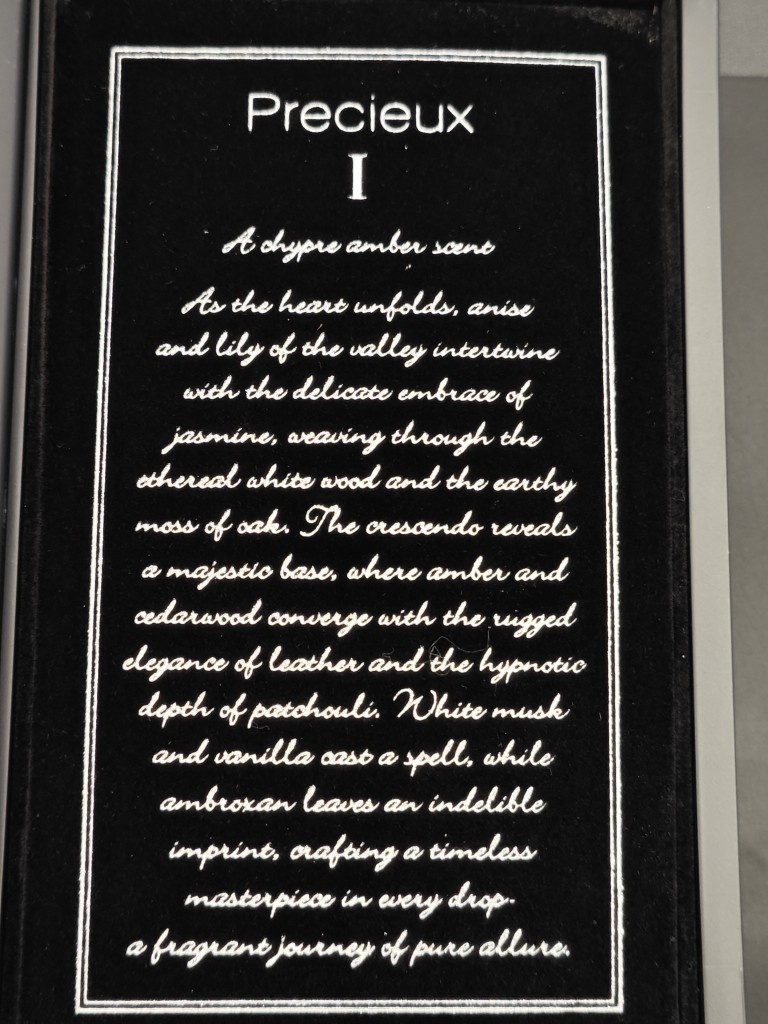 Precieux
I
A chypre amber scent
As the heart unfolds, anise
and lily of the valley intertwine
with the delicate embrace of
jasmine, weaving through the
ethereal white wood and the earthy
moss of oak. The crescendo reveals
a majestic base, where amber and
cedarwood converge with the rugged
elegance of leather and the hypnotic
depth of patchouli. White musk
and vanilla cast a spell, while
ambroxan leaves an indelible
imprint, crafting a timeless
masterpiece in every drop-
a fragrant journey of pure allure.